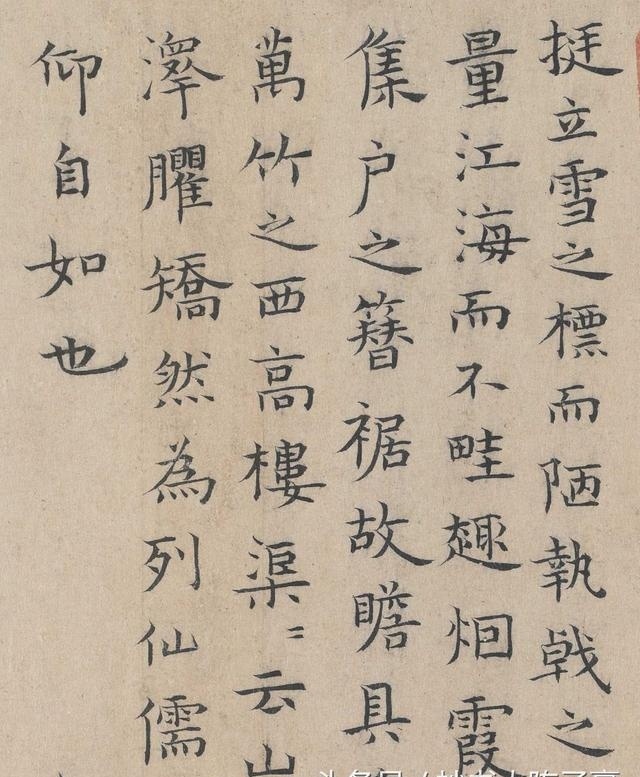 挺立雪之標而陋執戟之
量江海而不畦趣烟霞
集户之簪裾故瞻具
萬竹之西高樓渠〻云山
澤臞矯然為列仙儒
仰自如也